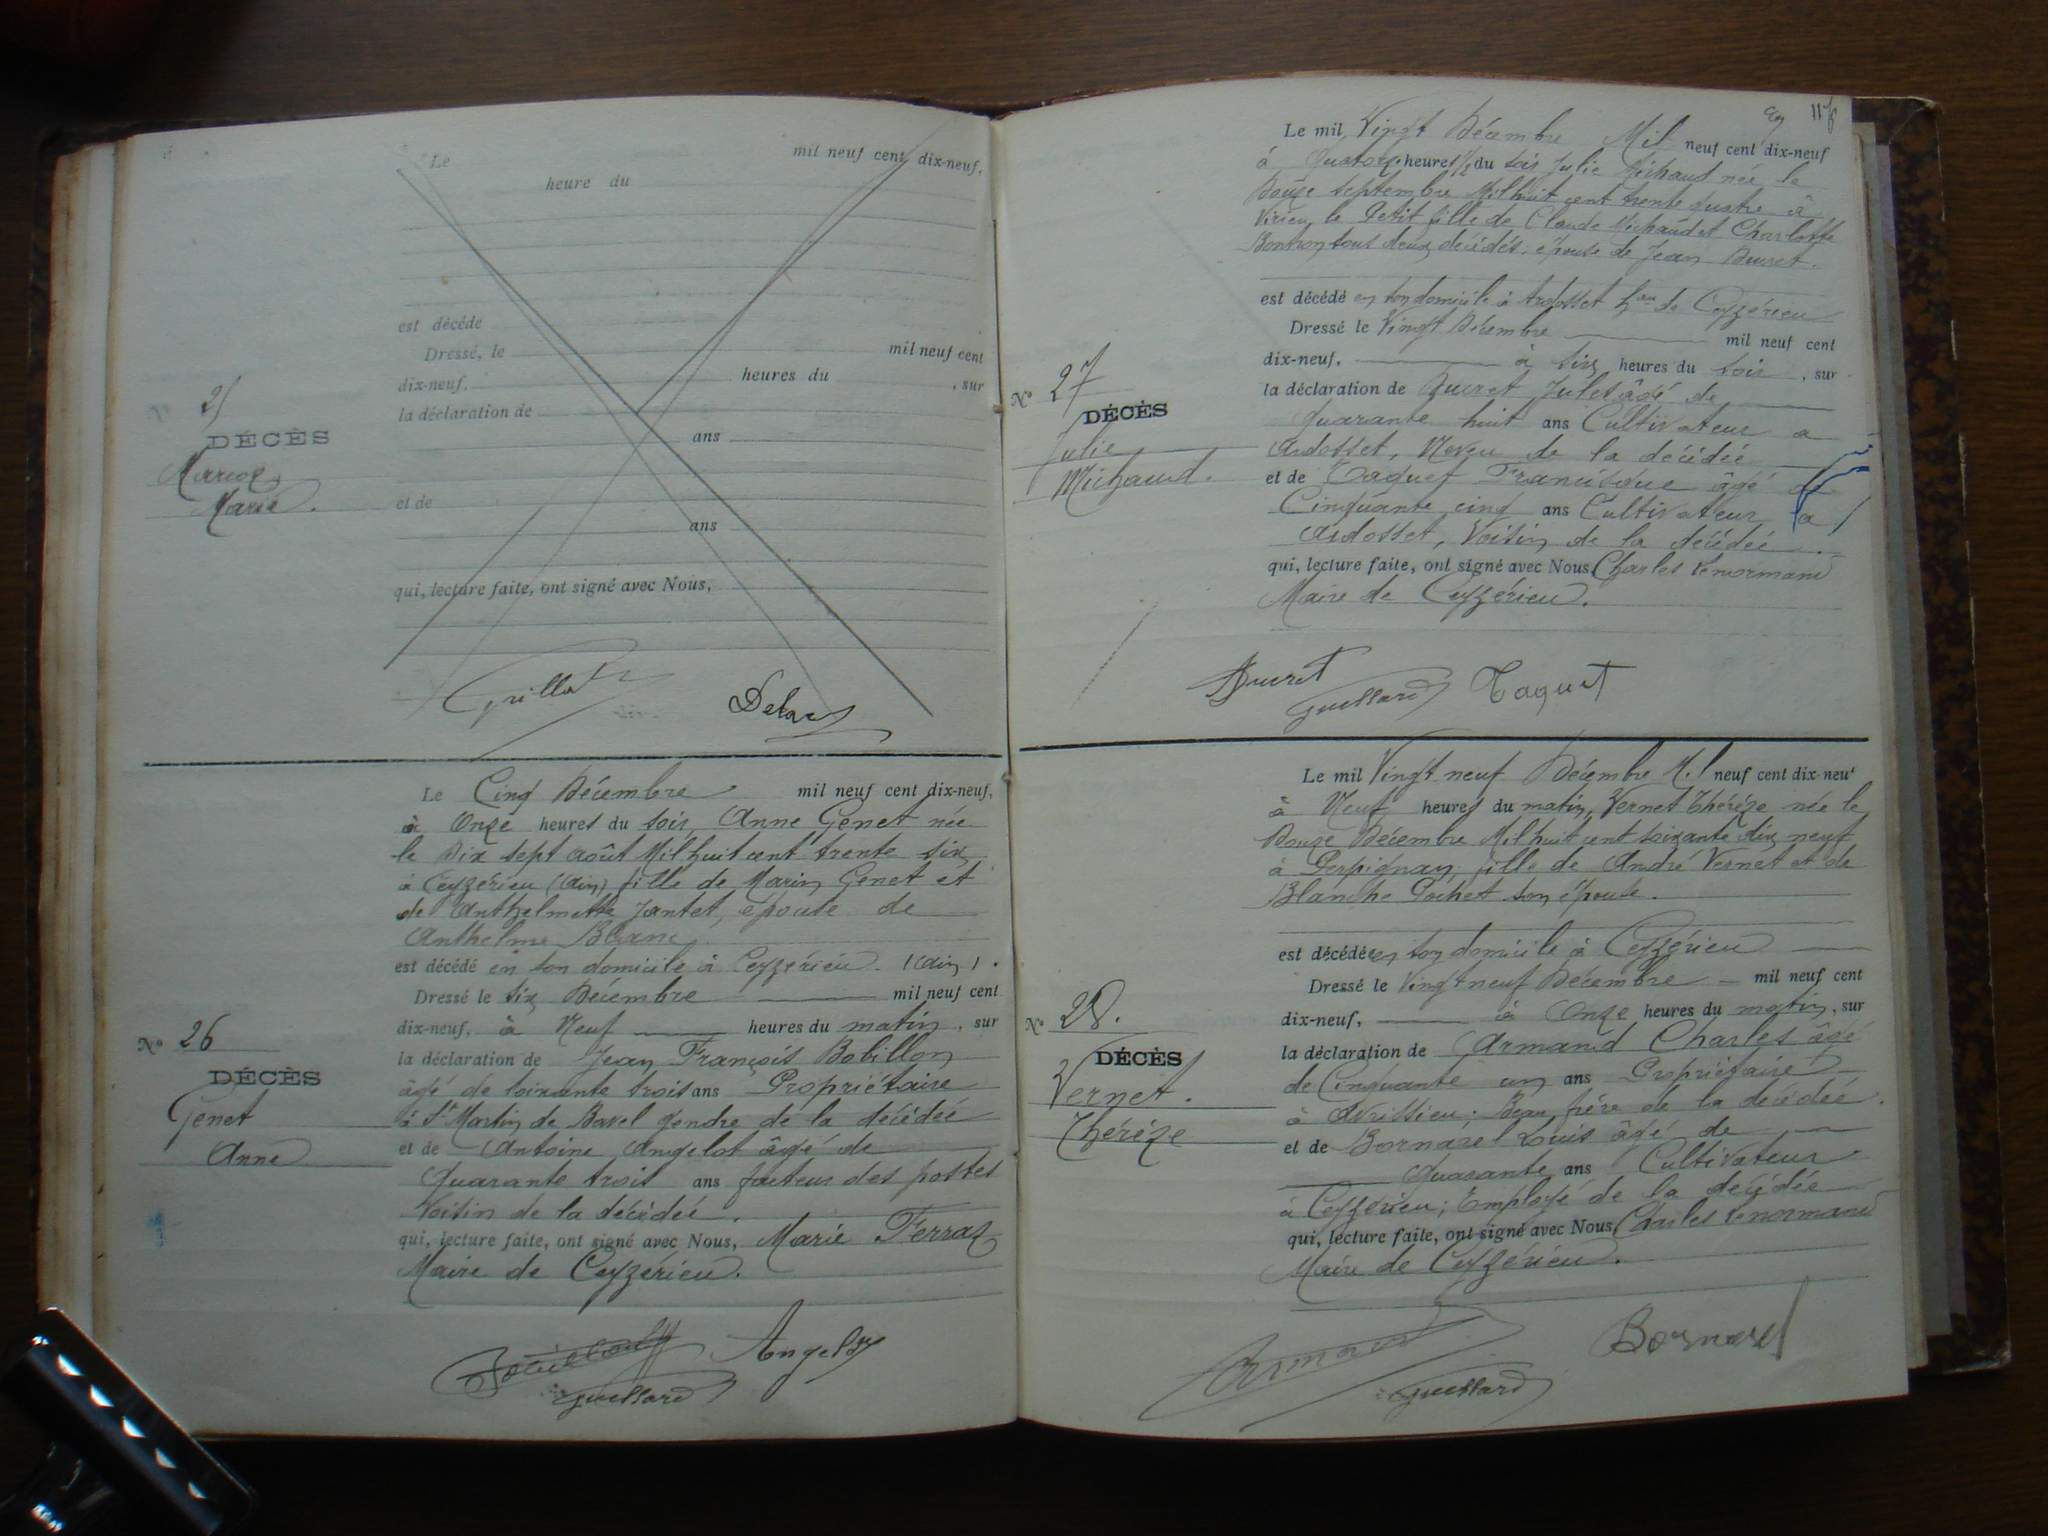 Le mil neuf cent dix-neuf,
heure du
est décédé
Dressé, le mil neuf cent
dix-neuf, heures du , sur
la déclaration de
ans
et de
ans
qui, lecture faite, ont signé avec Nous,
25
DÉCÈS
Marie.
Le Cinq Décembre mil neuf cent dix-neuf,
à Onze heures du soir, Anne Genet née
le Dix sept août Mil huit cent trente six
à Ceyzérieu (Ain) fille de Marin Genet et
de Anthelmette Jantet, épouse de
Anthelme Blanc.
est décédé en son domicile à Ceyzérieu. (Ain).
Dressé le six Décembre mil neuf cent
dix-neuf, à Neuf heures du matin, sur
la déclaration de Jean François Bobillon
âgé de soixante trois ans Propriétaire
à St Martin de Bavel gendre de la décédée
et de Antoine Angelot âgé de
Quarante trois ans facteur des postes
Voisin de la décédée.
qui, lecture faite, ont signé avec Nous, Marie Ferraz
Maire de Ceyzérieu.
Nº 26
DÉCÈS
Genet
Anne
Angelot
Guessard
117
Le mil Vingt Décembre Mil neuf cent dix-neuf
à Quatorze heures 1/2 du soir Julie Michaud née le
Douze septembre Mil huit cent trente quatre à
Virieu le Petit fille de Claude Michaud et Charlotte
tous deux décédés, épouse de Jean Ducret.
est décédé en son domicile à Ardosset hau de Ceyzérieu
Dressé le Vingt Décembre mil neuf cent
dix-neuf, à six heures du soir, sur
la déclaration de Ducret Jules âgé de
Quarante huit ans Cultivateur a
Ardosset, Neveu de la décédée
et de Taquet Francisque âgé de
Cinquante cinq ans Cultivateur a
Ardosset, Voisin de la décédée.
qui, lecture faite, ont signé avec Nous Charles Lenormand
Maire de Ceyzérieu.
Nº 27
DÉCÈS
Julie
Michaud.
Ducret
Guessard Taquet
Le mil Vingt neuf Décembre Mil neuf cent dix-neuf
à Neuf heures du matin, Vernet Thérèze née le
Douze Décembre Mil huit cent soixante dix neuf
à Perpignan, fille de André Vernet et de
Blanche Pochet son épouse.
est décédée en son domicile à Ceyzérieu
Dressé le Vingt neuf Décembre mil neuf cent
dix-neuf, à Onze heures du matin, sur
la déclaration de Armand Charles âgé
de Cinquante un ans Propriétaire
à Avrissieu; Beau frère de la décédée.
et de Bornarel Louis âgé de
Quarante ans Cultivateur
à Ceyzérieu; Employé de la décédée
qui, lecture faite, ont signé avec Nous, Charles Lenormand
Maire de Ceyzérieu.
Nº 28.
DÉCÈS
Vernet.
Thérèze
Armand
Bornarel
Guessard